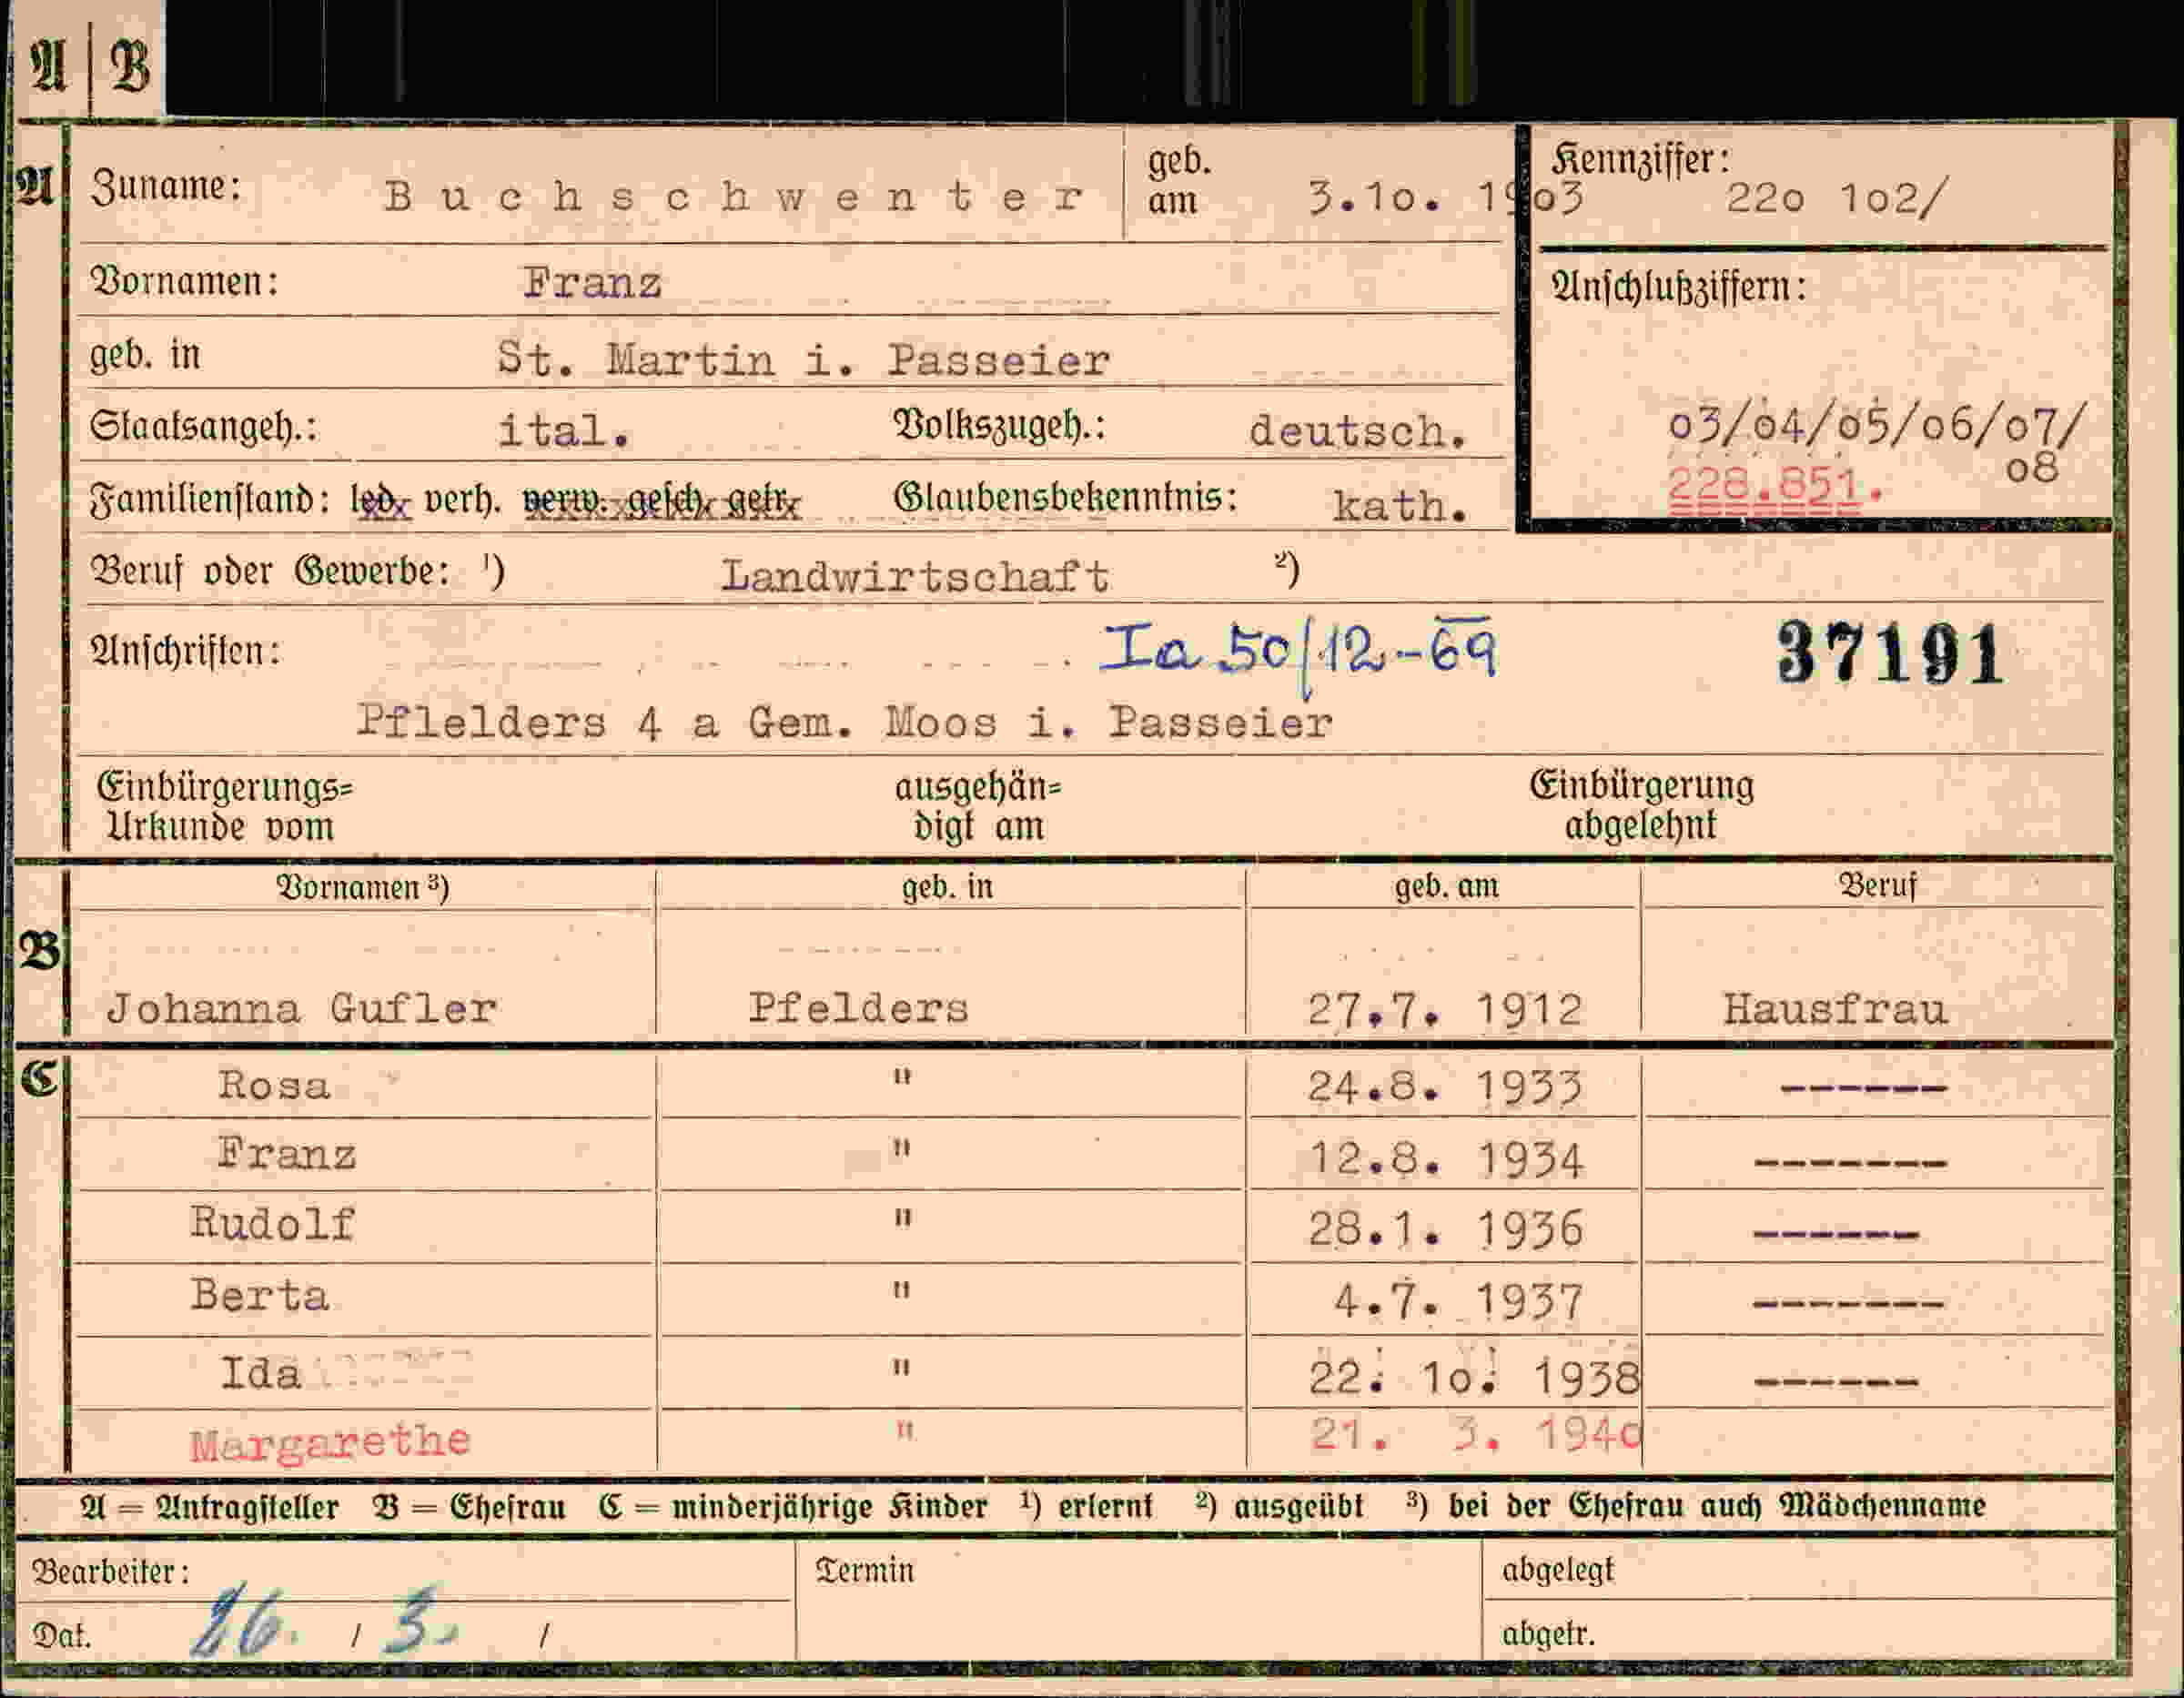 A | B
A Zuname: Buchschwenter geb. am 3.10. 1903 Kennziffer: 22o 1o2/
Vornamen: Franz Anschlußziffern:
geb. in St. Martin i. Passeier
Staatsangeh.: ital. Volkszugeh.: deutsch. o3/o4/o5/o6/o7/
o8
228.851.
Familienstand: led. verh. verw. gesch. getr. Glaubensbekenntnis: kath.
Beruf oder Gewerbe: 1) Landwirtschaft 2)
Anschriften: Ia 50/12-69 37191
Pflelders 4 a Gem. Moos i. Passeier
Einbürgerungs= ausgehän= Einbürgerung
Urkunde vom digt am abgelehnt
Vornamen 3) geb. in geb. am Beruf
B
Johanna Gufler Pfelders 27.7. 1912 Hausfrau
C Rosa " 24.8. 1933 ------
Franz " 12.8. 1934 -------
Rudolf " 28.1. 1936 ------
Berta " 4.7. 1937 -------
Ida " 22. 1o. 1938 ------
Margarethe " 21. 3. 194o
A = Antragsteller B = Ehefrau C = minderjährige Kinder 1) erlernt 2) ausgeübt 3) bei der Ehefrau auch Mädchenname
Bearbeiter: Termin abgelegt
Dat. 26. / 3. / abgetr.